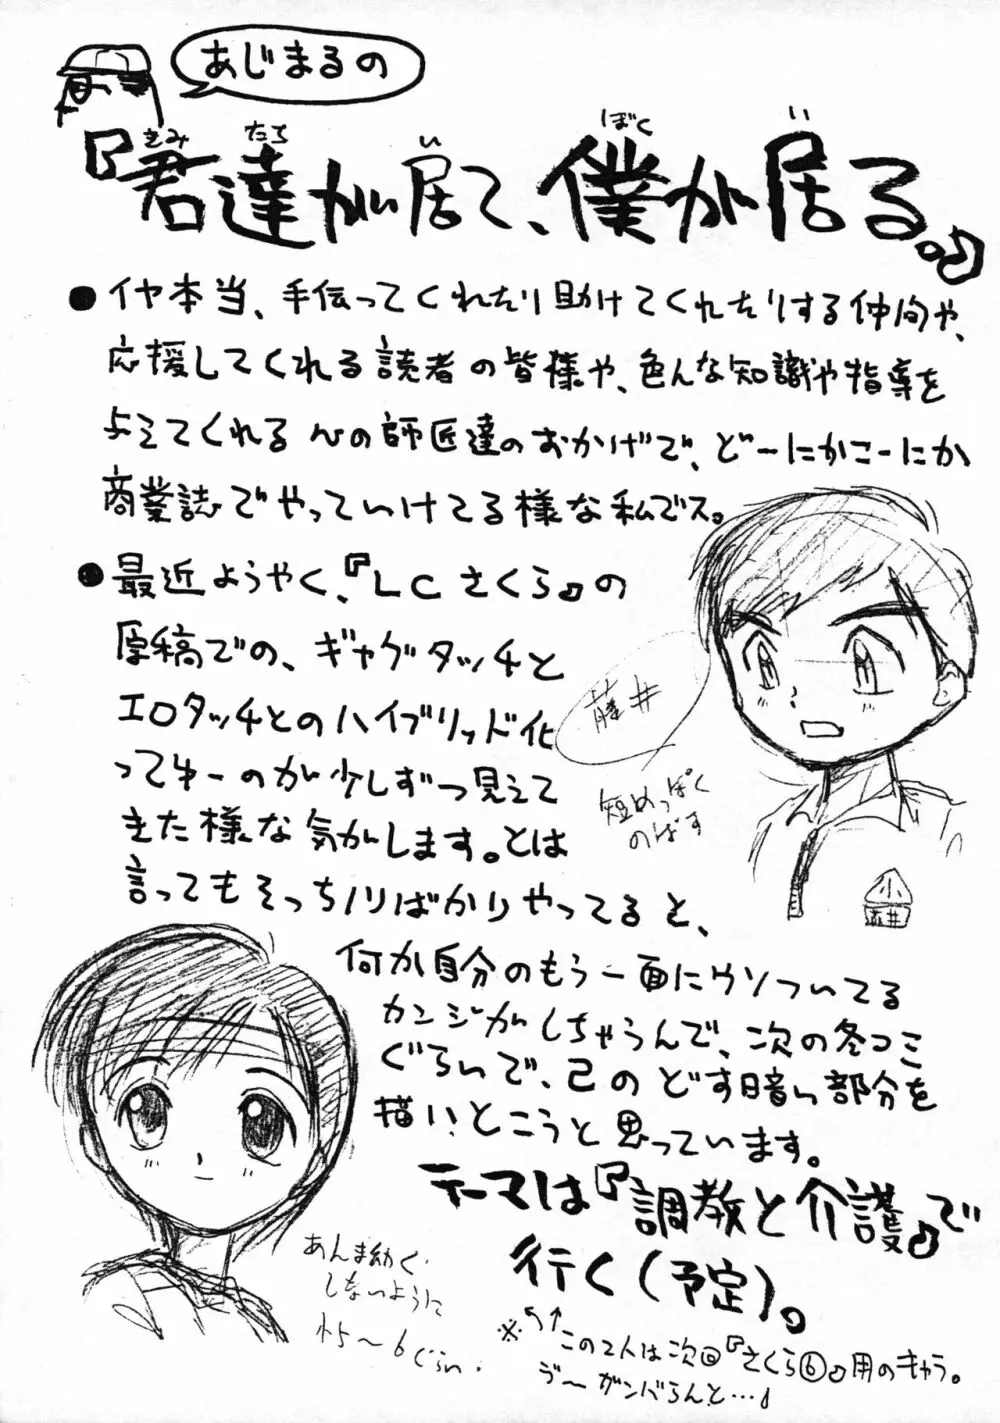 あじまるの
『君達が居て、僕が居る。』
きみ たち い ぼく い
●イヤ本当、手伝ってくれたり助けてくれたりする仲間や、
応援してくれる読者の皆様や、色んな知識や指導を
与えてくれる心の師匠達のおかげで、どーにかこーにか
商業誌でやっていけてる様な私でス。
●最近ようやく、『LCさくら』の
原稿での、ギャグタッチと
エロタッチとのハイブリッド化
ってゆーのが少しずつ見えて
きた様な気がします。とは
言ってもそっちノリばかりやってると、
何か自分のもう一面にウソついてる
カンジがしちゃうんで、次の冬コミ
ぐらいで、己のどす暗い部分を
描いとこうと思っています。
テーマは『調教と介護』で
行く(予定)。
※この2人は次回『さくら⑥』用のキャラ。
ヴ〜ガンバらんと…♪
藤井
短めっぽく
のばす
小
あんま幼く
しないように
5〜6ぐらい.